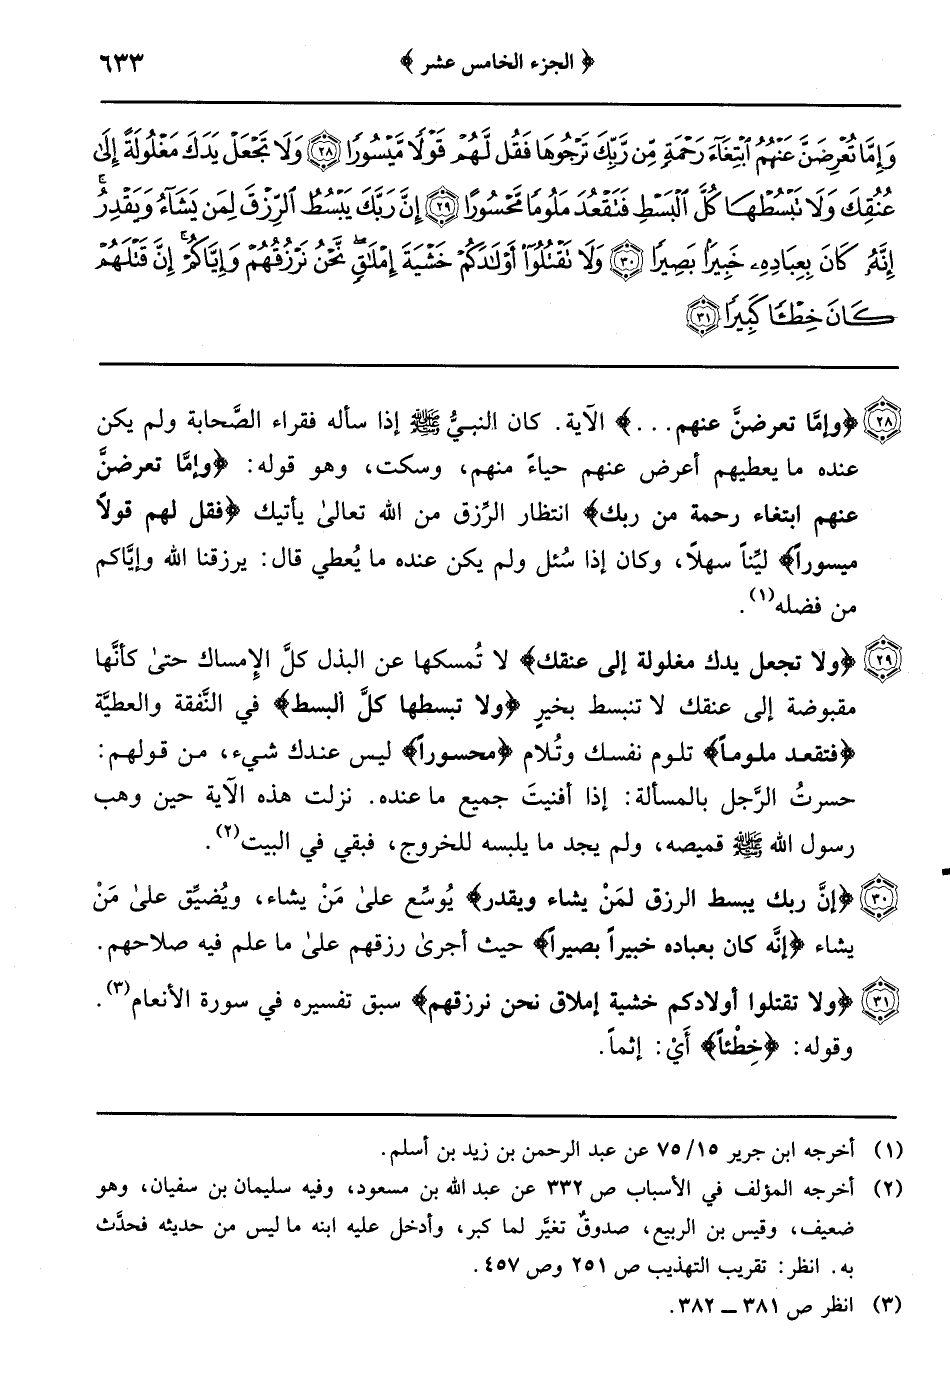 ﴿ الجزء الخامس عشر ﴾ ٦٣٣
وَإِمَّا تُعْرِضَنَّ عَنْهُمُ ٱبْتِغَآءَ رَحْمَةٍ مِّن رَّبِّكَ تَرْجُوهَا فَقُل لَّهُمْ قَوْلًا مَّيْسُورًا ٢٨ وَلَا تَجْعَلْ يَدَكَ مَغْلُولَةً إِلَىٰ
عُنُقِكَ وَلَا تَبْسُطْهَا كُلَّ ٱلْبَسْطِ فَتَقْعُدَ مَلُومًا مَّحْسُورًا ٢٩ إِنَّ رَبَّكَ يَبْسُطُ ٱلرِّزْقَ لِمَن يَشَآءُ وَيَقْدِرُ ۚ
إِنَّهُۥ كَانَ بِعِبَادِهِۦ خَبِيرًۢا بَصِيرًا ٣٠ وَلَا تَقْتُلُوٓا۟ أَوْلَـٰدَكُمْ خَشْيَةَ إِمْلَـٰقٍ ۖ نَّحْنُ نَرْزُقُهُمْ وَإِيَّاكُمْ ۚ إِنَّ قَتْلَهُمْ
كَانَ خِطْـًٔا كَبِيرًا ٣١
٢٨ ﴿وإمَّا تعرضنَّ عنهم...﴾ الآية. كان النبيُّ ﷺ إذا سأله فقراء الصَّحابة ولم يكن
عنده ما يعطيهم أعرض عنهم حياءً منهم، وسكت، وهو قوله: ﴿وإمَّا تعرضنَّ
عنهم ابتغاء رحمة من ربك﴾ انتظار الرِّزق من الله تعالىٰ يأتيك ﴿فقل لهم قولاً
ميسوراً﴾ ليِّناً سهلاً، وكان إذا سُئل ولم يكن عنده ما يُعطي قال: يرزقنا الله وإيَّاكم
من فضله(١).
٢٩ ﴿ولا تجعل يدك مغلولة إلى عنقك﴾ لا تُمسكها عن البذل كلَّ الإمساك حتىٰ كأنَّها
مقبوضة إلى عنقك لا تنبسط بخيرٍ ﴿ولا تبسطها كلَّ البسط﴾ في النَّفقة والعطيَّة
﴿فتقعد ملوماً﴾ تلوم نفسك وتُلام ﴿محسوراً﴾ ليس عندك شيء، من قولهم:
حسرتُ الرَّجل بالمسألة: إذا أفنيتَ جميع ما عنده. نزلت هذه الآية حين وهب
رسول الله ﷺ قميصه، ولم يجد ما يلبسه للخروج، فبقي في البيت(٢).
٣٠ ﴿إنَّ ربك يبسط الرزق لمَنْ يشاء ويقدر﴾ يُوسِّع علىٰ مَنْ يشاء، ويُضيِّق علىٰ مَنْ
يشاء ﴿إنَّه كان بعباده خبيراً بصيراً﴾ حيث أجرىٰ رزقهم علىٰ ما علم فيه صلاحهم.
٣١ ﴿ولا تقتلوا أولادكم خشية إملاق نحن نرزقهم﴾ سبق تفسيره في سورة الأنعام(٣).
وقوله: ﴿خِطْئاً﴾ أَيْ: إثماً.
(١) أخرجه ابن جرير ٧٥/١٥ عن عبد الرحمن بن زيد بن أسلم.
(٢) أخرجه المؤلف في الأسباب ص ٣٣٢ عن عبد الله بن مسعود، وفيه سليمان بن سفيان، وهو
ضعيف، وقيس بن الربيع، صدوقٌ تغيَّر لما كبر، وأدخل عليه ابنه ما ليس من حديثه فحدَّث
به. انظر: تقريب التهذيب ص ٢٥١ وص ٤٥٧.
(٣) انظر ص ٣٨١ ــ ٣٨٢.